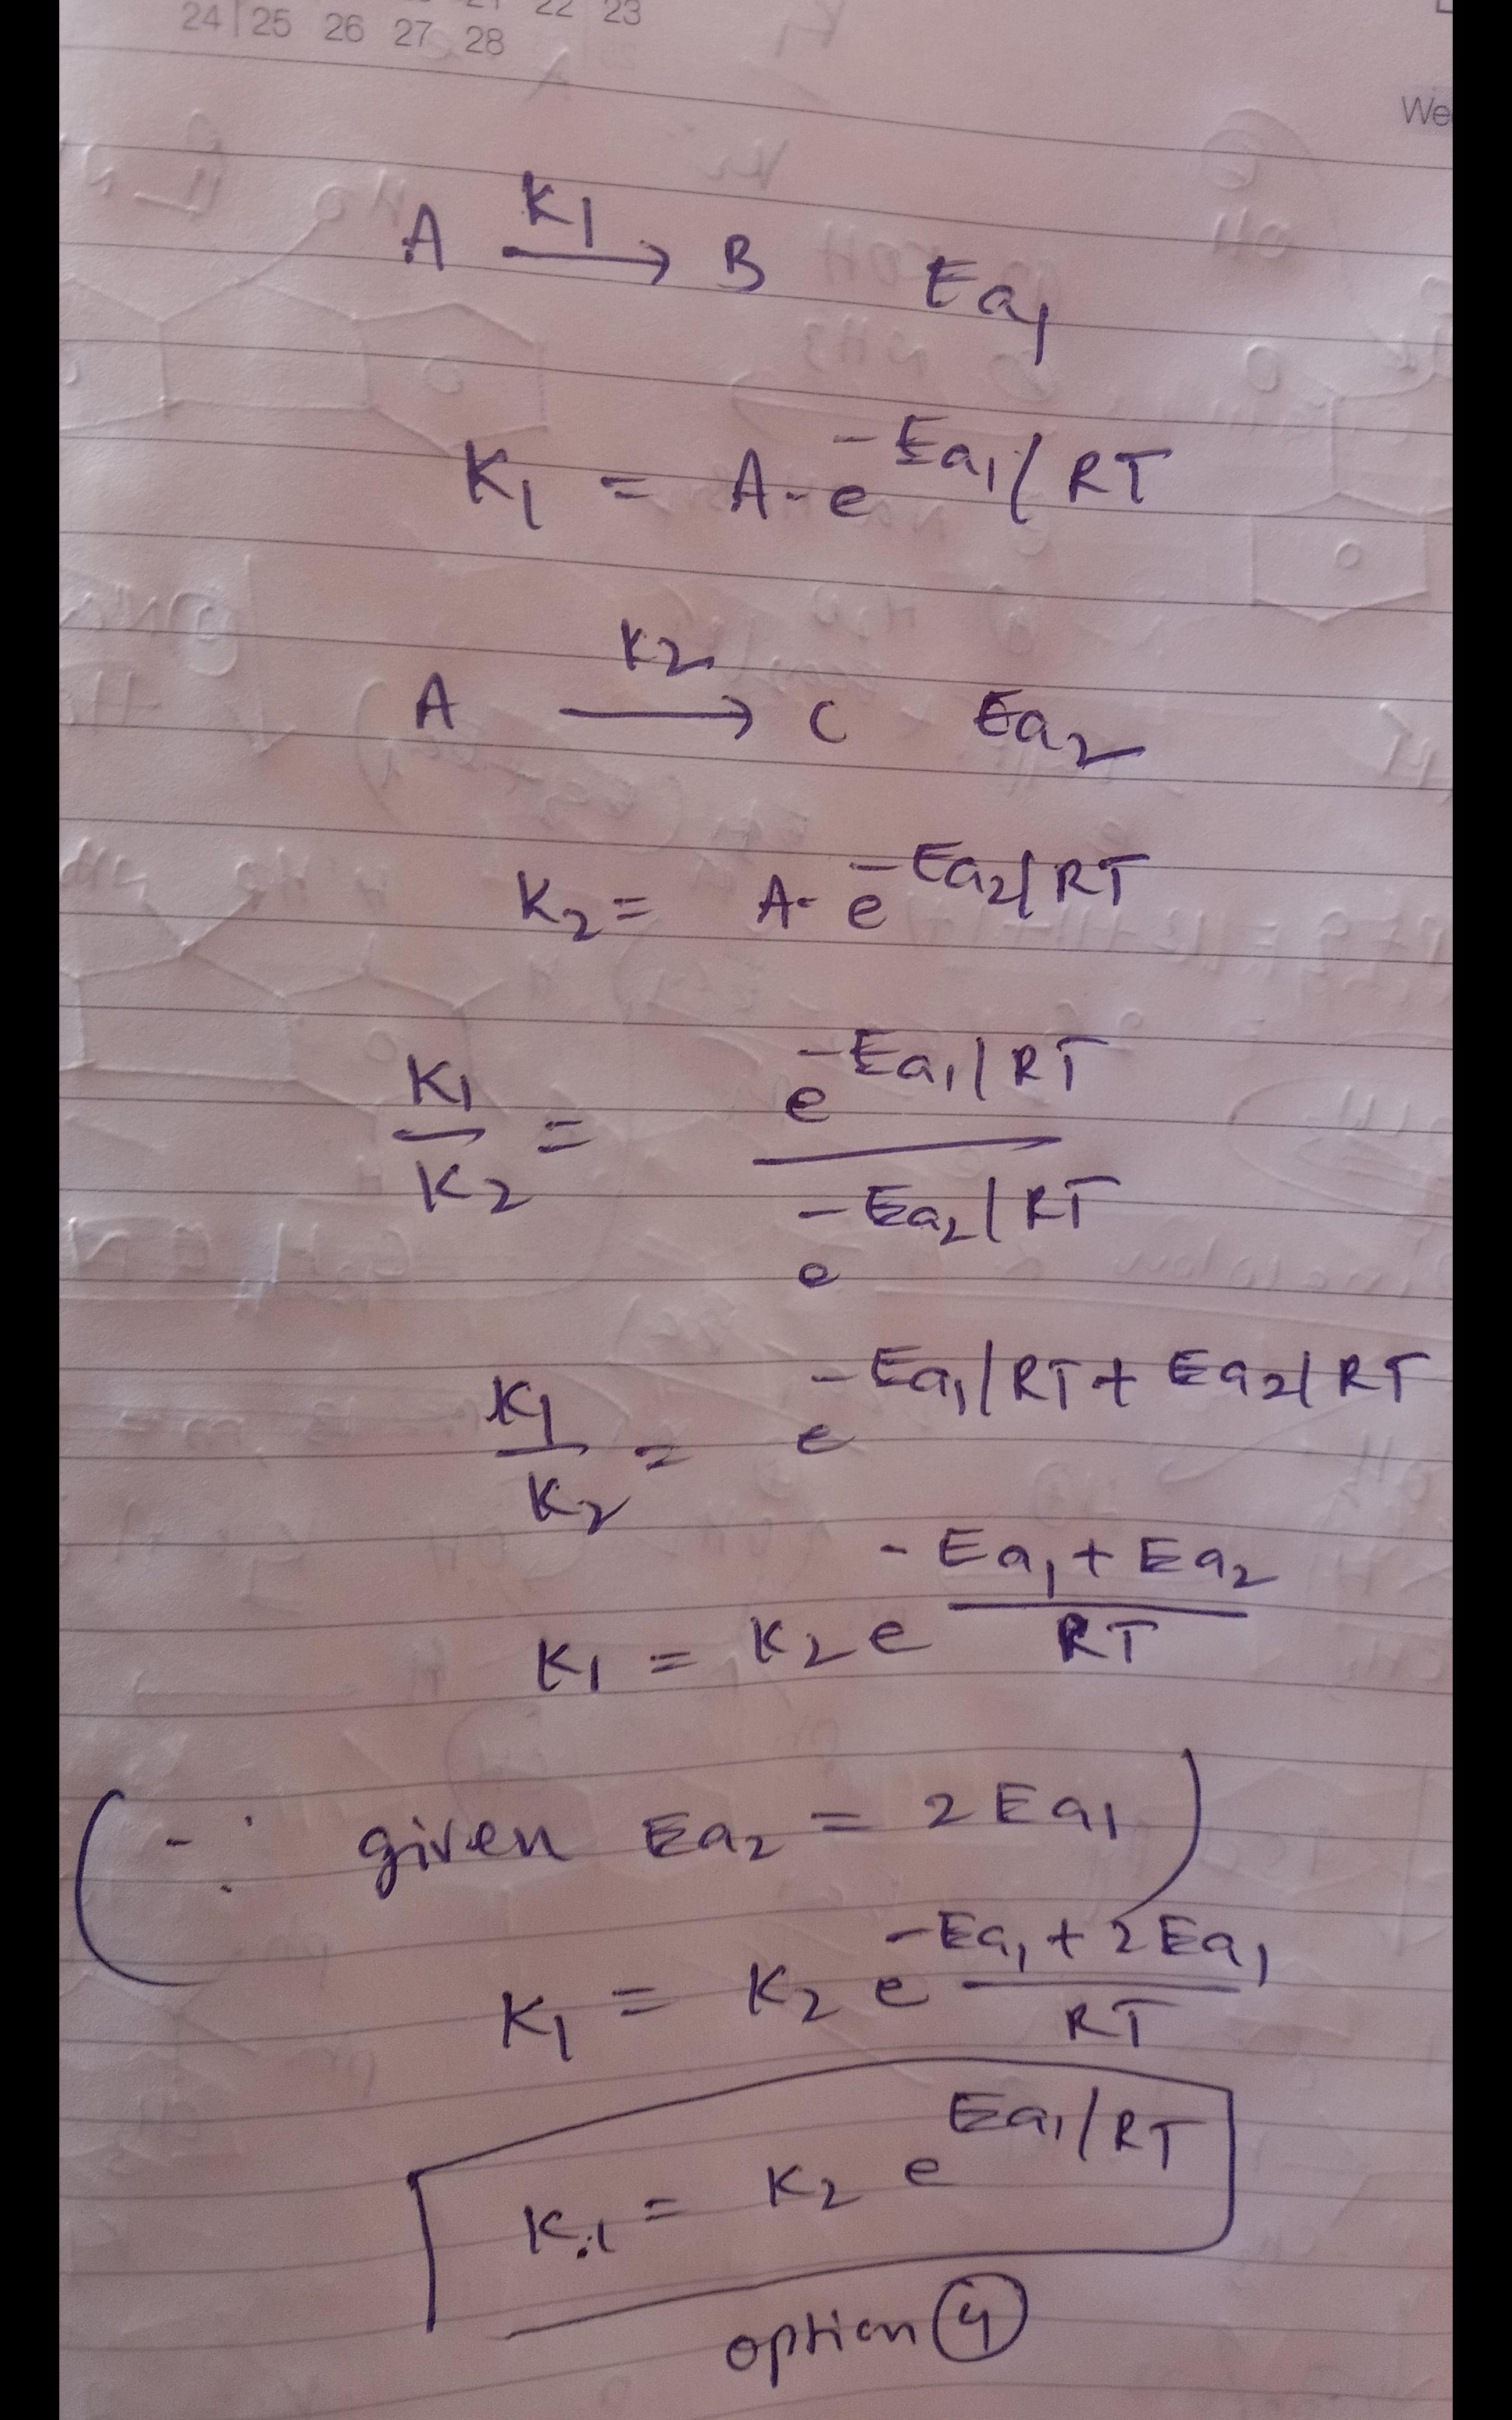 21 22 23
24 25 26 27 28
We
A K1 → B Ea1
K1 = A. e^-Ea1/RT
A K2 → C Ea2
K2 = A. e^-Ea2/RT
K1/K2 = e^-Ea1/RT / e^-Ea2/RT
K1/K2 = e^-Ea1/RT + Ea2/RT
K1 = K2 e^-Ea1 + Ea2 / RT
(∵ given Ea2 = 2 Ea1)
K1 = K2 e^-Ea1 + 2 Ea1 / RT
K1 = K2 e^Ea1/RT
option 4